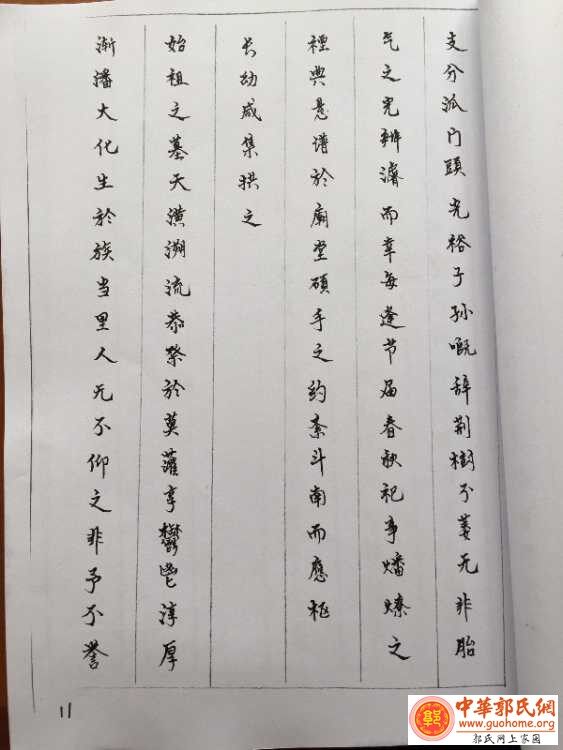 支分派门頭光裕子孙嘅辞荆樹不萎无非胎
气之光辨濤而幸每逢节届春秋祀事燔燎之
禋典悬谱於廟堂碩手之約素斗南而應柩
长幼咸集拱之
始祖之墓天潢溯流恭祭於奠灌享鬱鬯淳厚
渐潘大化生於族当里人无不仰之非予不誉
11
郭
中華郭氏網
www.guohome.org
郭氏网上家园